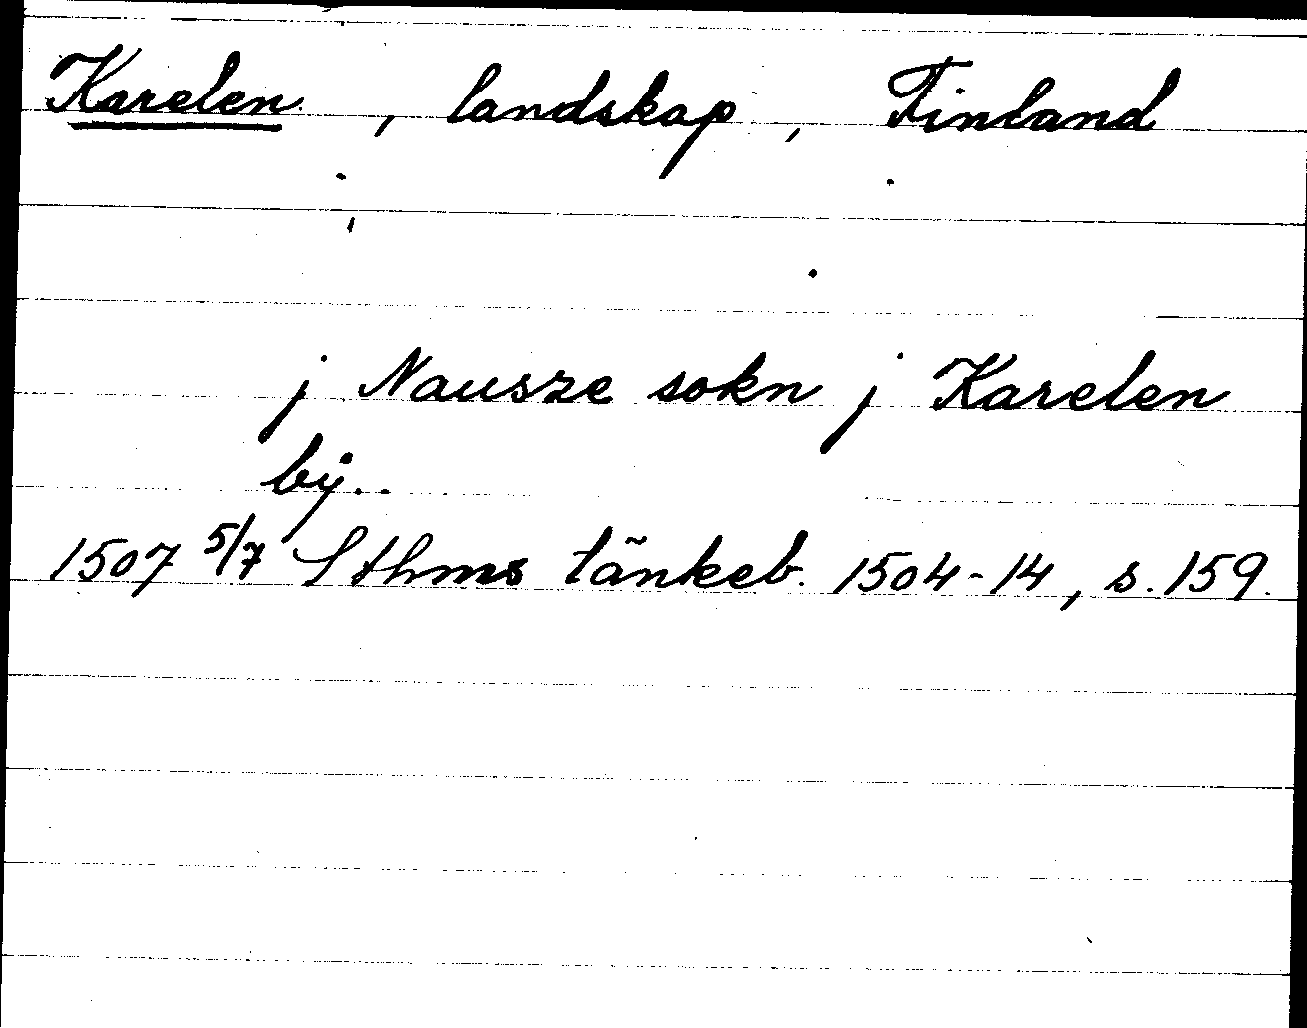 Karelen, landskap, Finland
j Nausze sokn j Karelen
bÿ..
1507 5/7 Sthms tänkeb. 1504-14, s. 159.